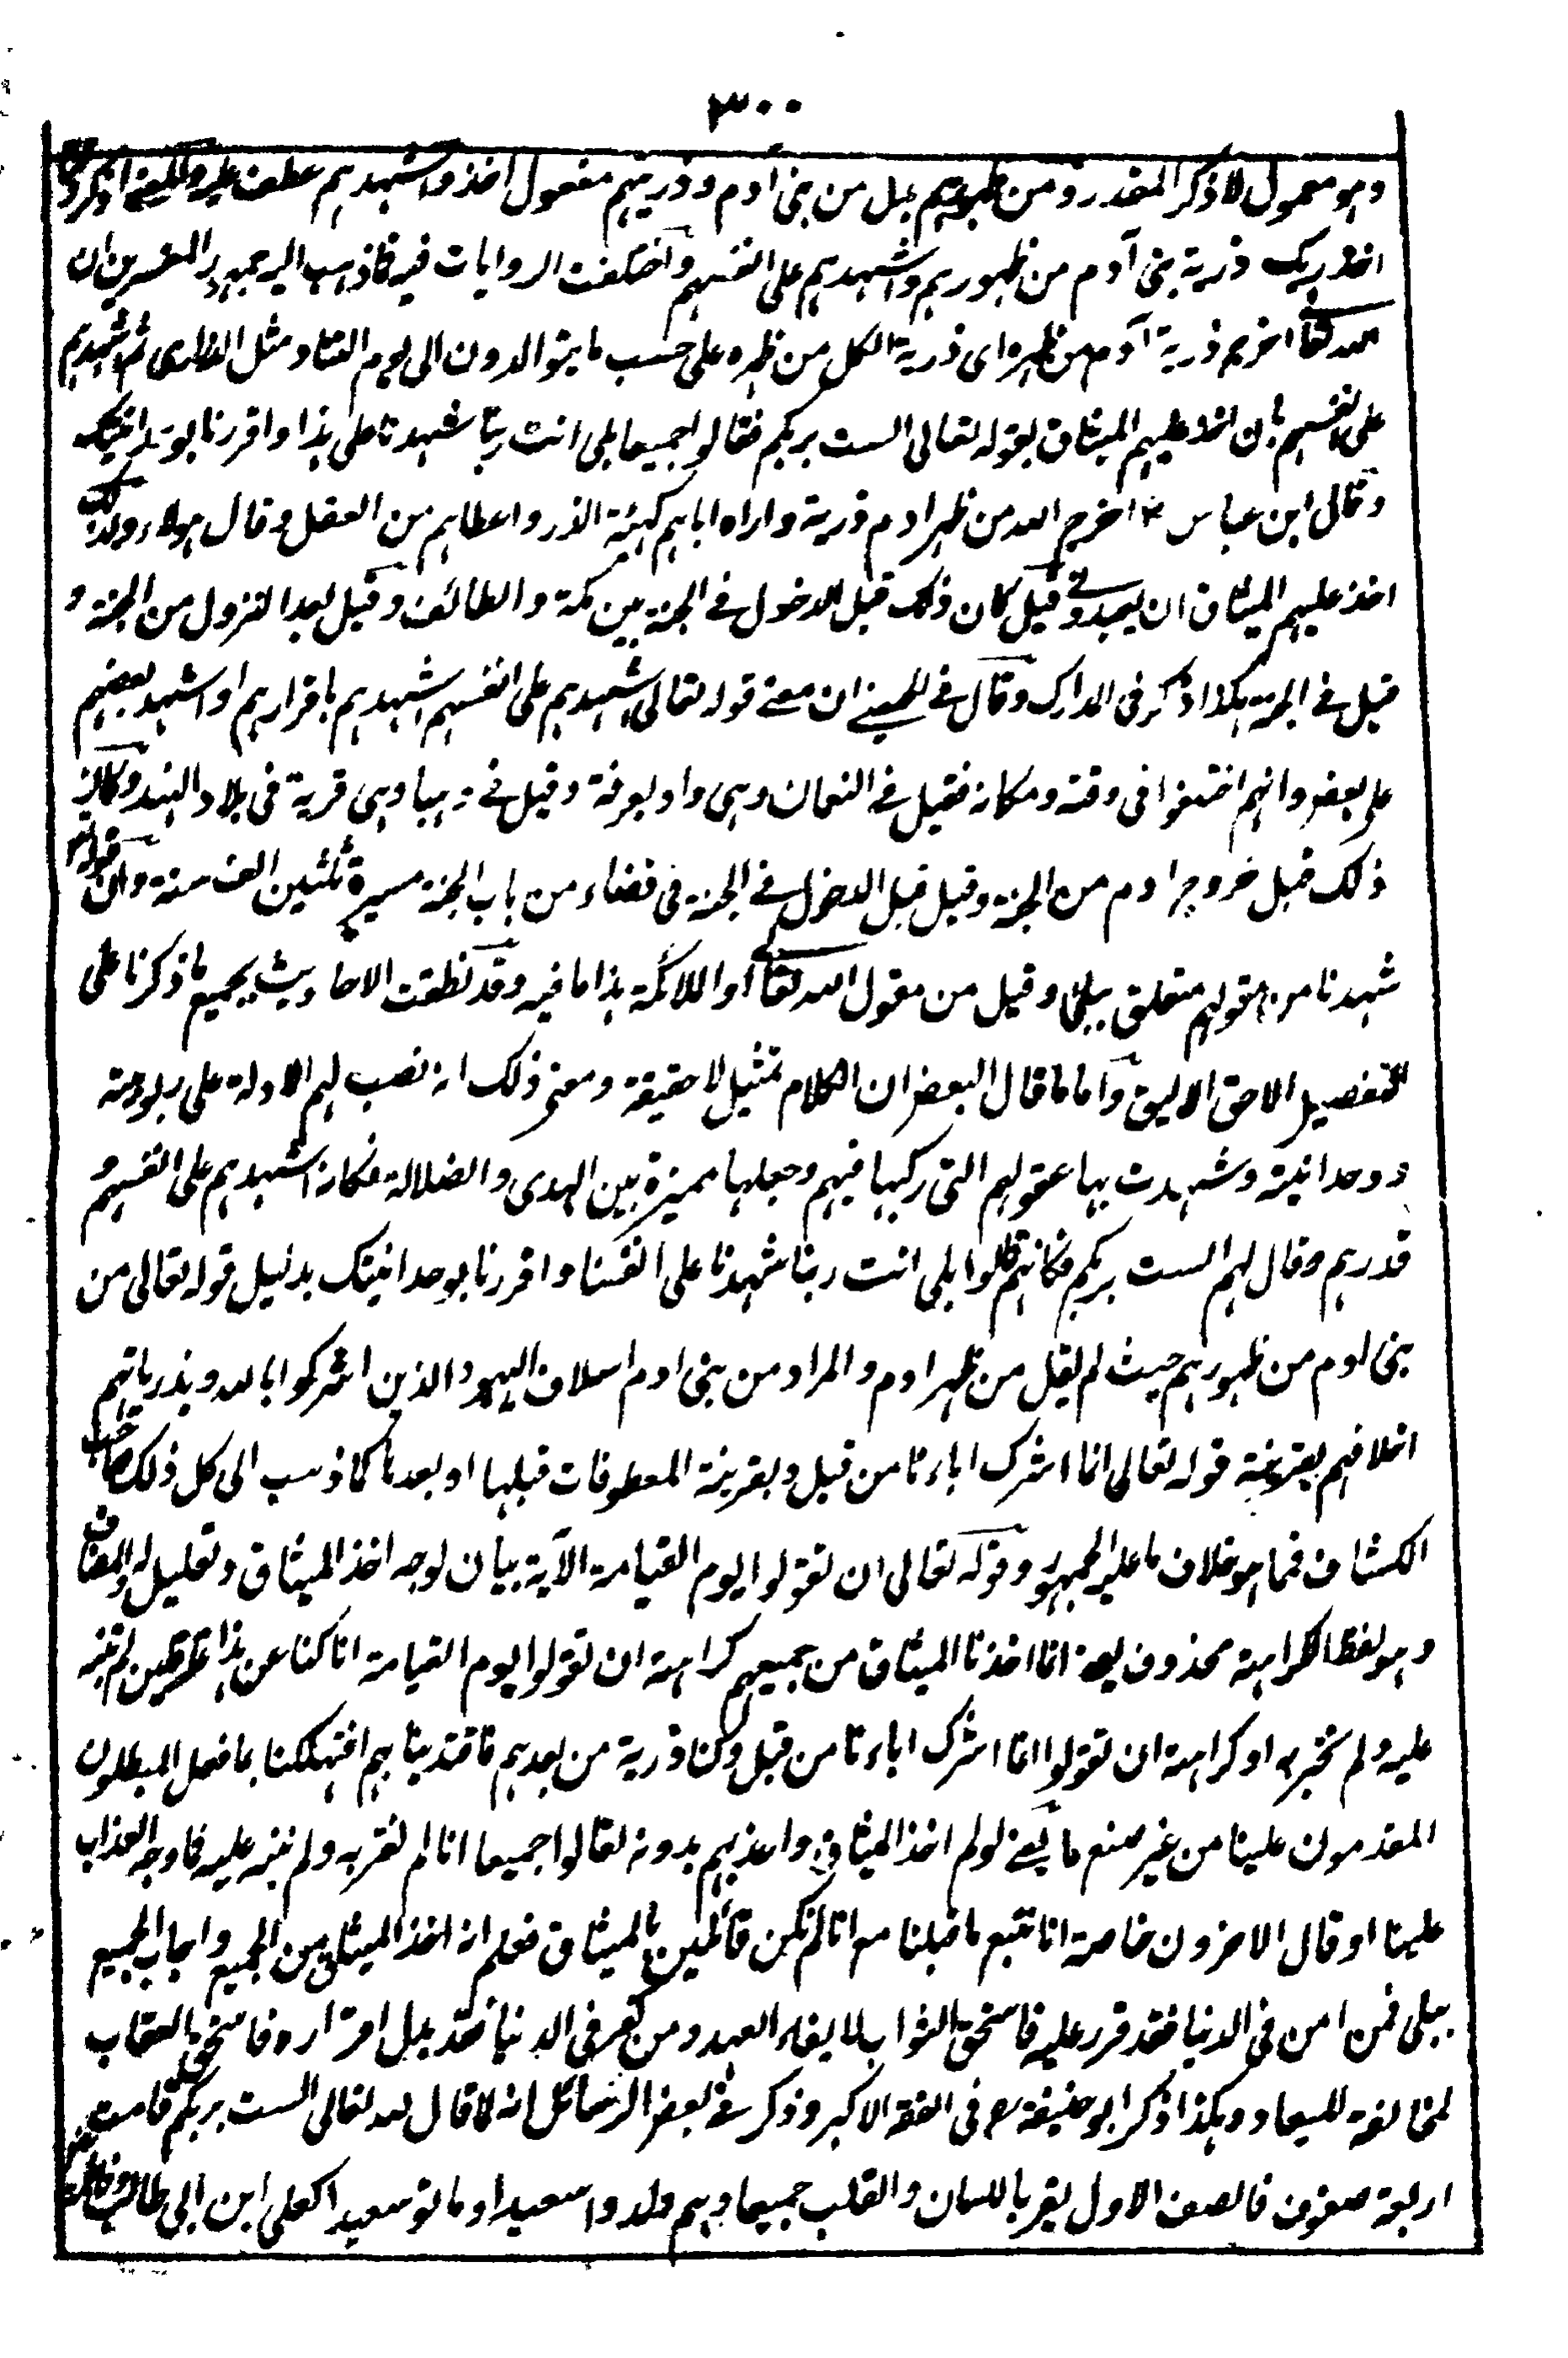 ٣٠٠
وهو معمول لاذكر المقدر ومن ظهورهم بدل من بني ادم وذريتهم مفعول اخذ واشهدهم عطف عليه والمعنى اذكر
اخذ ربك ذرية بني آدم من ظهورهم واشهدهم على انفسهم واختلفت الروايات فيه فما ذهب اليه جمهور المفسرين ان
الله تعا اخرج ذرية آدم من ظهره اى ذرية الكل من ظهره على حسب ما يتوالدون الى يوم التناد مثل الذرارى ثم اشهدهم
على انفسهم بان اخذ عليهم الميثاق بقوله تعالى الست بربكم فقالوا جميعا بلى انت ربنا شهدنا على هذا واقررنا بوحدانيتك
وقال ابن عباس رض اخرج الله من ظهر ادم ذرية واراه اياهم كهيئة الذر واعطاهم من العقل وقال هؤلاء ولدك
اخذ عليهم الميثاق ان يعبدونى وقيل كان ذلك قبل الدخول فے الجنة بين مكة والطائف وقيل بعد النزول من الجنة و
قيل فے الجنة هكذا ذكر فى المدارك وقال فے الحسينے ان معنے قوله تعالى اشهدهم على انفسهم اشهدهم باقرارهم او اشهد بعضهم
على بعض وانهم اختلفوا فى وقته ومكانه فقيل فے النعمان وهى واد بعرفة وقيل فے دهيا وهى قرية فى بلاد الهند وكان
ذلك قبل خروج ادم من الجنة وقيل قبل الدخول فے الجنة فى فضاء من باب الجنة مسيرة ثلثين الف سنة وان قولهم
شهدنا من مقولهم متعلق ببلى وقيل من مقول الله تعا او الملائكة هذا ما فيه وقد نطقت الاحاديث بجميع ما ذكرنا على
التفصيل الاحق الاليق واما ما قال البعض ان الكلام تمثيل لا حقيقة ومعنى ذلك انه نصب لهم الادلة على ربوبيته
و وحدانيته وشهدت بها عقولهم التى ركبها فيهم وجعلها مميزة بين الهدى والضلالة فكانه اشهدهم على انفسهم و
قدرهم وقال لهم الست بربكم فكانهم قالوا بلى انت ربنا شهدنا على انفسنا واقررنا بوحدانيتك بدليل قوله تعالى من
بنى ادم من ظهورهم حيث لم يقل من ظهر ادم والمراد من بنى ادم اسلاف اليهود الذين اشركوا بالله وبذرياتهم
اخلافهم بقرينة قوله تعالى انما اشرك اباءنا من قبل وبقرينة المعطوفات قبلها او بعدها كما ذهب الى كل ذلك صاحب
الكشاف فمما هو خلاف ما عليه الجمهور وقوله تعالى ان تقولوا يوم القيامة الآية بيان لوجه اخذ الميثاق وتعليل له والمضاف
وهو لفظ الكراهة محذوف يعنے انا اخذنا الميثاق من جميعهم كراهة ان تقولوا يوم القيامة انا كنا عن هذا غافلين لم ننبه
عليه ولم نخبر به او كراهة ان تقولوا انما اشرك اباءنا من قبل وكنا ذرية من بعدهم فاقتدينا بهم افتهلكنا بما فعل المبطلون
المقدمون علينا من غير صنع ما يعنے لو لم اخذ الميثاق واعذبهم بدونه لقالوا جميعا انا لم نقر به ولم ننبه عليه فما وجه العذاب
علينا او قال الاخرون خاصة انا نتبع ما قبلنا مع انا لم نكن قائلين بالميثاق فعلم انه اخذ الميثاق من الجميع واجاب الجميع
ببلى فمن امن فى الدنيا فقد قرر عليه فاستحق الثواب لايفاء العهد ومن كفر فى الدنيا فقد بدل اقراره فاستحق العقاب
لمخالفته للميعاد وهكذا ذكر ابو حنيفة رح فى الفقه الاكبر وذكر فے بعض الرسائل انه لما قال الله تعالى الست بربكم قامت
اربعة صفوف فالصف الاول يقر باللسان والقلب جميعا وهم ولدوا سعيدا وماتو سعيدا كعلى ابن ابى طالب